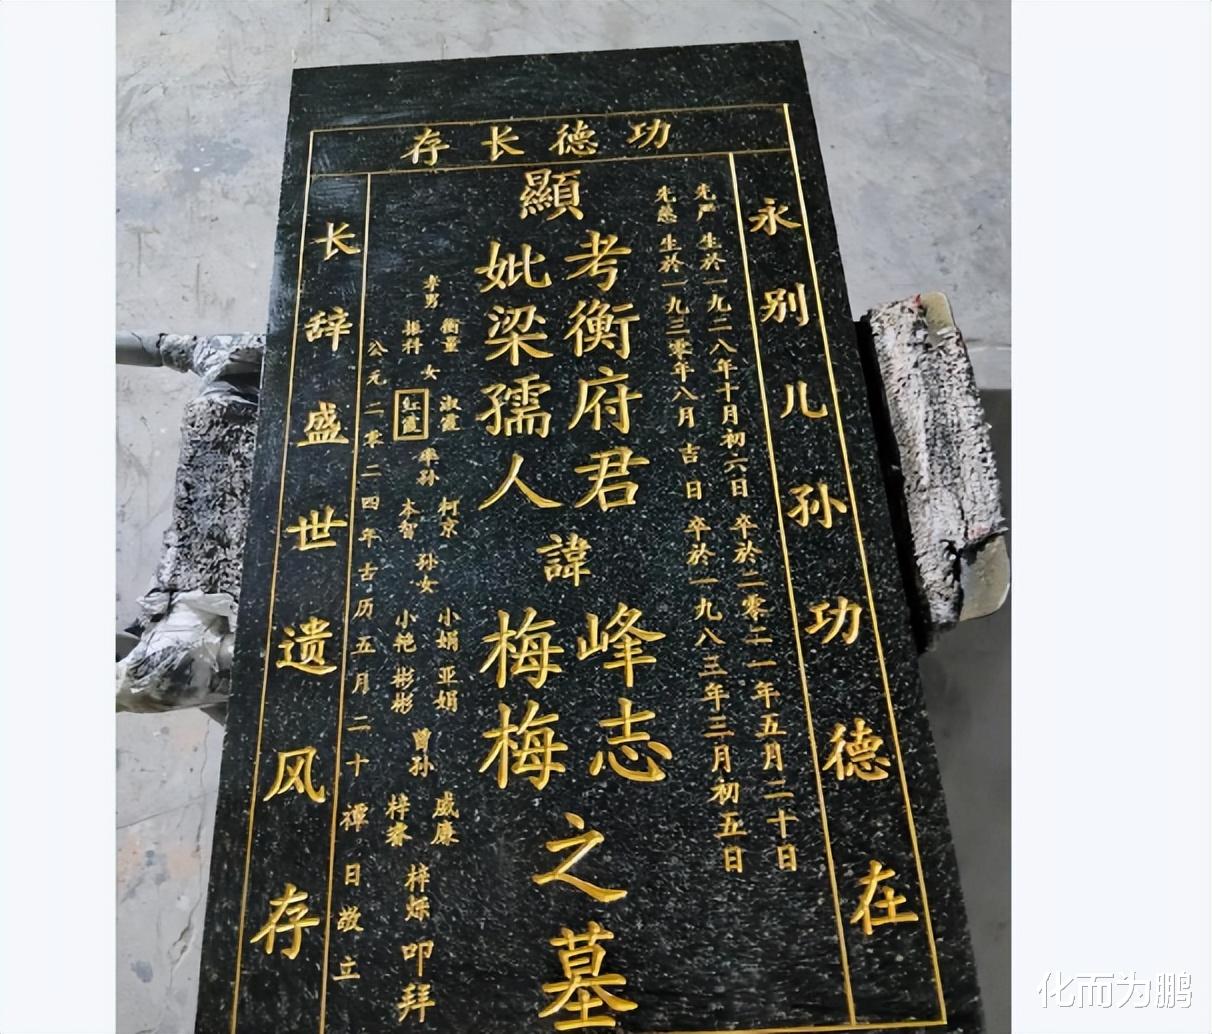 功德长存
永别儿孙功德在
先严 生於一九二八年十月初六日 卒於二零二一年五月二十日
先慈 生於一九三零年八月 吉日 卒於一九八三年三月初五日
顯
考衡府君
妣梁孺人
諱
峰志
梅梅
之墓
孝男
振科
女
淑霞
红霞
率孙
柯京
本智
孙女
小娟 亚娟
小艳 彬彬
曾孙
威廉
梓睿
梓烁
叩拜
公元二零二四年古历五月二十禫日敬立
长辞盛世遗风存
化而为鹏